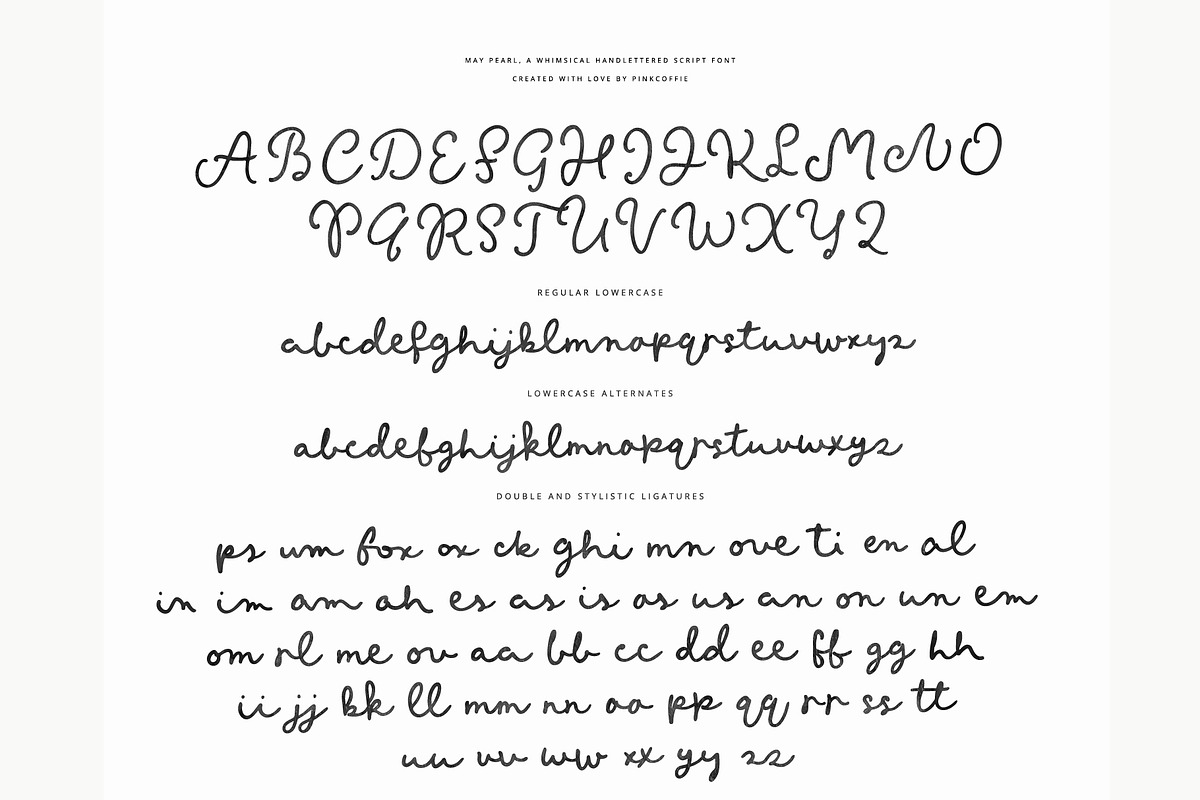 MAY PEARL, A WHIMSICAL HANDLETTERED SCRIPT FONT
CREATED WITH LOVE BY PINKCOFFIE
ABCDEFGHIJKLMNO
PQRSTUVWXYZ
REGULAR LOWERCASE
abcdefghijklmnopqrstuvwxyz
LOWERCASE ALTERNATES
abcdefghijklmnopqrstuvwxyz
DOUBLE AND STYLISTIC LIGATURES
ps um fox ox ck ghi mn ove ti en al
in im am ah es as is os us an on un em
om rl me ov aa bb cc dd ee ff gg hh
ii jj kk ll mm nn oo pp qq rr ss tt
uu vv ww xx yy zz